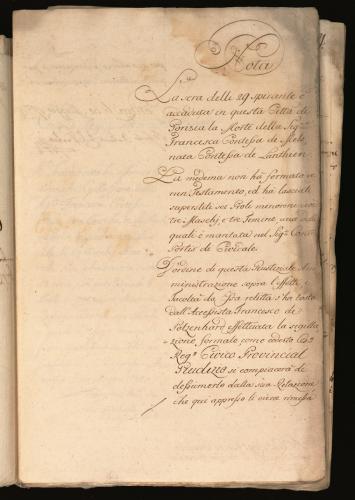 Nota
La sera delli 29 spirante è
accaduta in questa Città di
Gorizia la Morte della Sigra
Francesca Contessa de
nata Contessa de Lanthieri
La medema non hà formato ve
run Testamento, ed hà lasciati
superstiti sei Figli minorenni cioè
tre Maschj, e tre Femine, una delle
quali è maritata nel Sigr Conte
Portis di Cividale.
D'ordine di questa Giustiziale Am
ministrazione sopra l'effetti, e
facoltà da essa relitta s'hà tosto
dall'Accessista Francesco de
effettuata la sigilla
zione, formale, come codesto
Regio Civico Provincial
Giudizio si compiacerà de
dessumerlo dalla sua Relazione
che qui appresso li viene rimessa